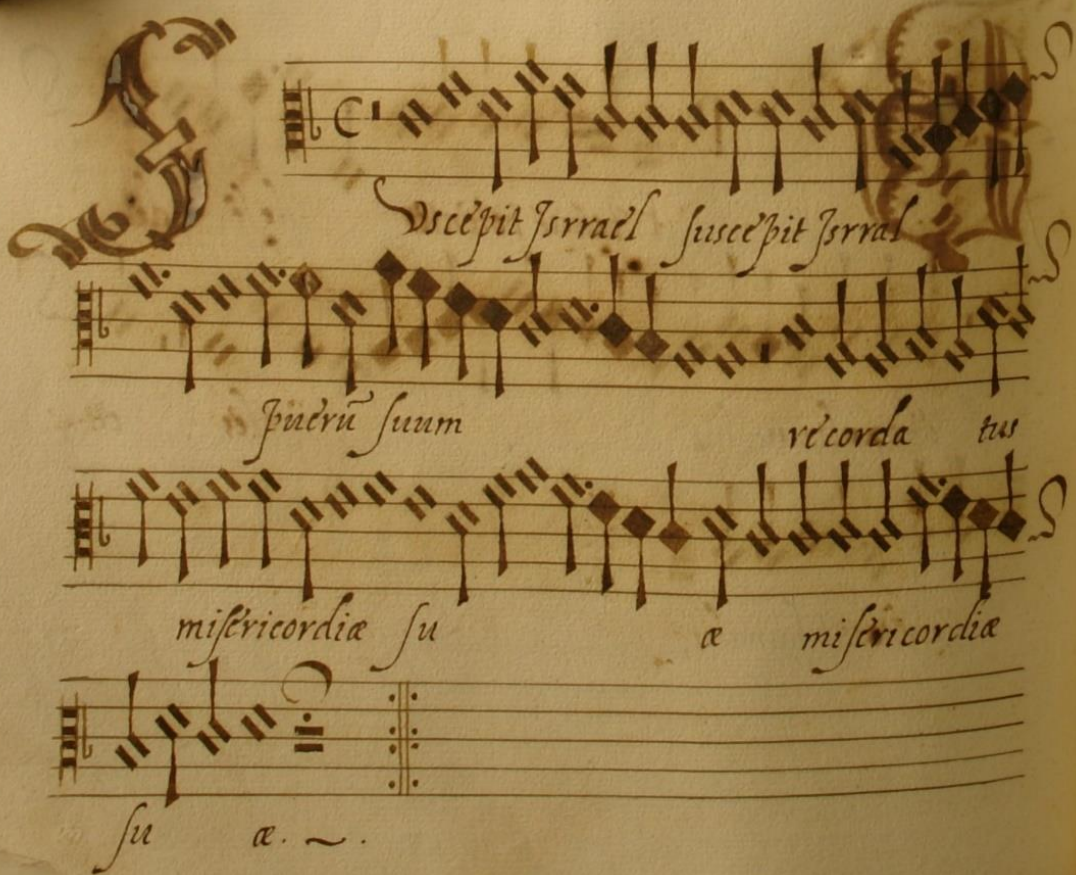 Suscepit Isrrael suscepit Isrral
puerū suum recorda tus
misericordiæ su æ misericordiæ
su æ.